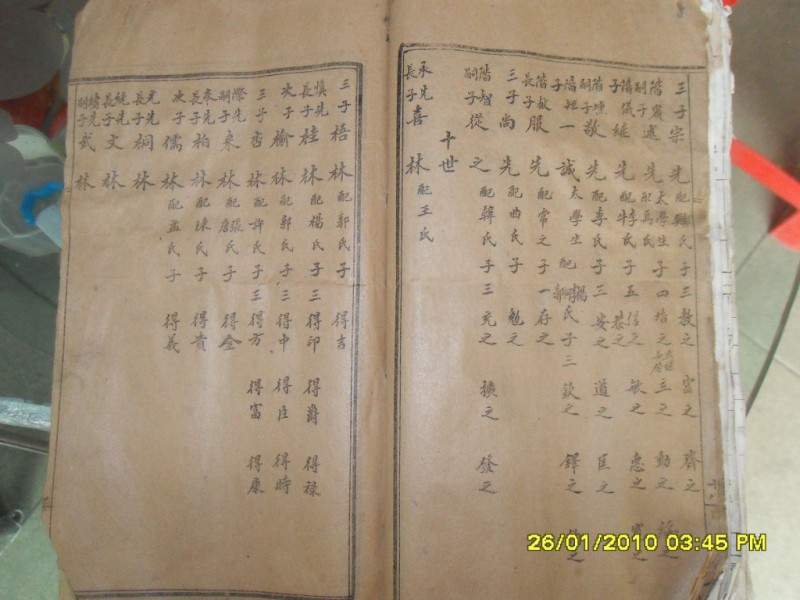 三子宗 先 配 氏 子三 教之 富之 齊之
階賓嗣子述 先 太學生 配馬氏 子四 培之 立之 動之
階儀子继 先 配李氏 牛氏 子五 信之 恭之 敏之 惠之 寬之
階 嗣子敬 先 配李氏 子三 安之 道之 匡之
階 子一 誠 太學生 配 楊氏 郭氏 子三 欽之 鐸之
階敏長子服 先 配常氏 子一 存之
三子尚 先 配曲氏 子 勉之
階智嗣子從 之 配韓氏 子三 充之 積之 發之
十世
承先長子喜 林 配王氏
三子梧 林 配郭氏 子 得吉
慎先長子桂 林 配楊氏 子三 得印 得爵 得禄
次子榆 林 配郭氏 子三 得中 得臣 得時
三子杏 林 配許氏 子三 得万 得富 得康
際先嗣子東 林 配張氏 唐氏 子 得全
來先長子柏 林 配陳氏 子 得貴
次子儒 林 配孟氏 子 得義
光先長子桐 林
統先長子文 林
緒先嗣子武 林
26/01/2010 03:45 PM